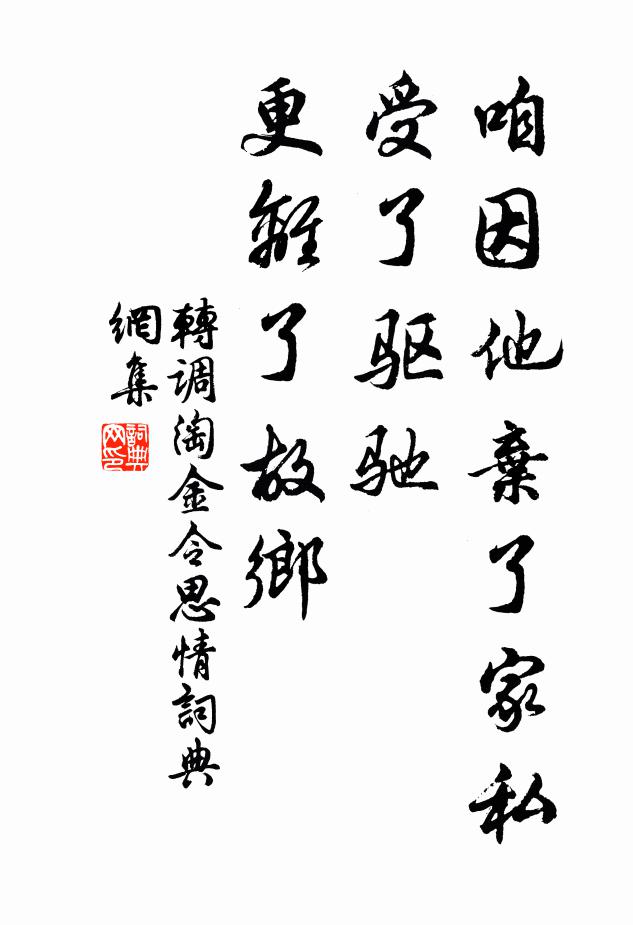 咱因他棄了家私
受了驱驰
更離了故鄉
轉调淘金令思情詞典
網集
詞典
网印